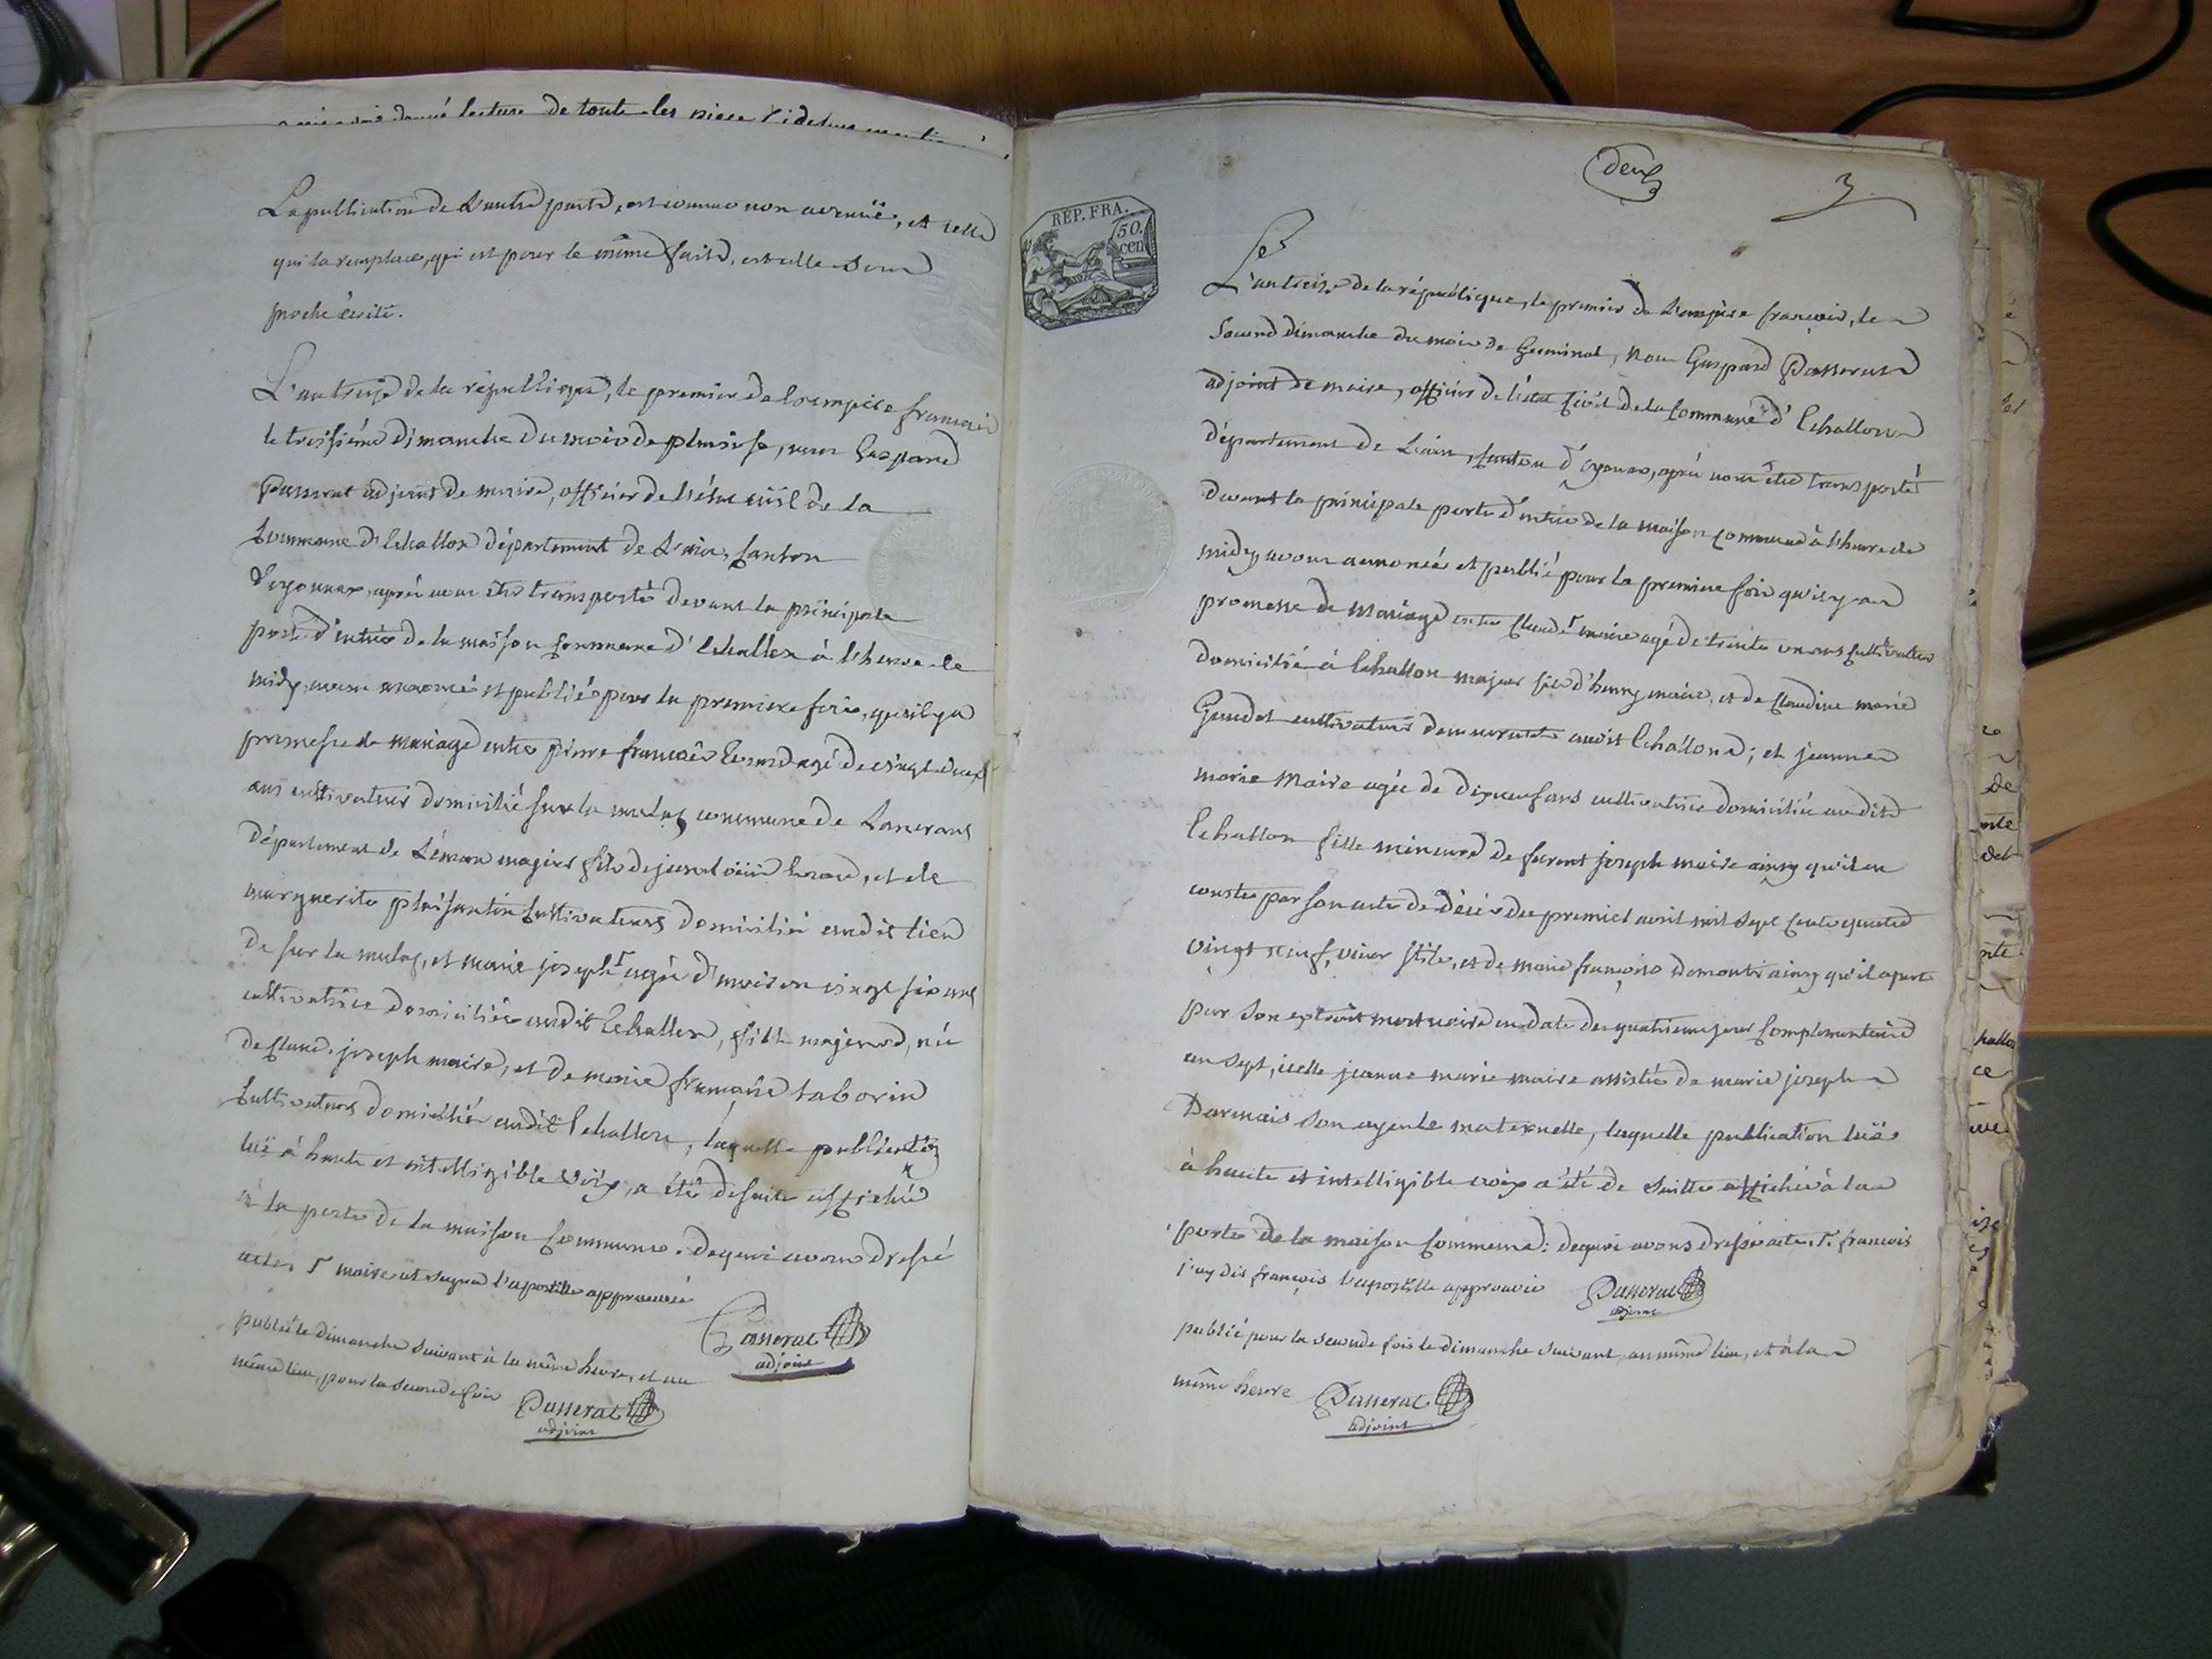 donné lecture de toute les piece
La publication de L'autre part, est comme non avenuë, et celle
qui la remplace, qui est pour le même fait, est celle sous
proche écrite.
L'an treize de la république, le premier de l'empire français
le troisième dimanche du mois de pluviose, nous Gaspard
Passerat adjoint de maire, officier de l'état civil de la
Commune d'Echallon département de L'ain, Canton
d'oyonnax, après nous être transporté devant la principale
porte d'entrée de la maison Commune d'Echallon à l'heure de
midy, avons annoncé et publié pour la premiere fois, qu'il y a
promesse de mariage entre pierre françois agé de vingt deux
ans cultivateur domicilié sur la commune de Lancrans
Département de Léman majeur fils de et de
marguerite cultivateurs domicilié audit lieu
de sur la et marie joseph r agée d'environ vingt six ans
cultivatrice domiciliée audit Echallon, fille majeure, née
de Claude joseph maire, et de marie françoise taborin
Cultivateurs domiciliés audit Echallon, laquelle publication
luë à haute et intelligible voix, a été de suite affiché
à la porte de la maison Commune. de quoi avons dressé
acte. r maire et l'apostille approuvée
Passerat
adjoint
publié le dimanche suivant à la même heure, et au
même lieu, pour la seconde fois Passerat
adjoint
deux
3
REP. FRA.
50.
cen
L'an treize de la république, le premier de L'empire françois, le
Second dimanche du mois de Germinal, nous Gaspard Passerat
adjoint de maire, officier de l'état civil de la Commune d'Echallon
département de L'ain, Canton d'oyonax, après nous être transporté
devant la principale porte d'entrée de la maison commune à l'heure de
midy avons annoncé et publié pour la premiere fois qu'il y a
promesse de mariage entre Claude r maire agé de trente un ans Cultivateur
domicilié à Echallon majeur fils d'henry maire, et de Claudine marie
Gaudet cultivateurs demeurants audit Echallon; et jeanne
marie Maire agée de dix neuf ans cultivatrice domiciliée audit
Echallon fille mineure de feu joseph maire ainsy qu'il en
conste par son acte de décès du premier avril mil sept cents quatre
vingt neuf, vieux stile, et de marie françoise ainsy qu'il apert
par son extrait mortuaire en date du quatrieme jour Complementaire
an sept, icelle jeanne marie maire assistée de marie joseph
Darmais son ayeule maternelle, laquelle publication luë
à haute et intelligible voix a été de suitte affichée à la
porte de la maison Commune: de quoi avons dressé acte. r. françois
j'ay dis françois l'apostille approuvée Passerat
adjoint
publié pour la seconde fois le dimanche suivant, au même lieu, et à la
même heure Passerat
adjoint